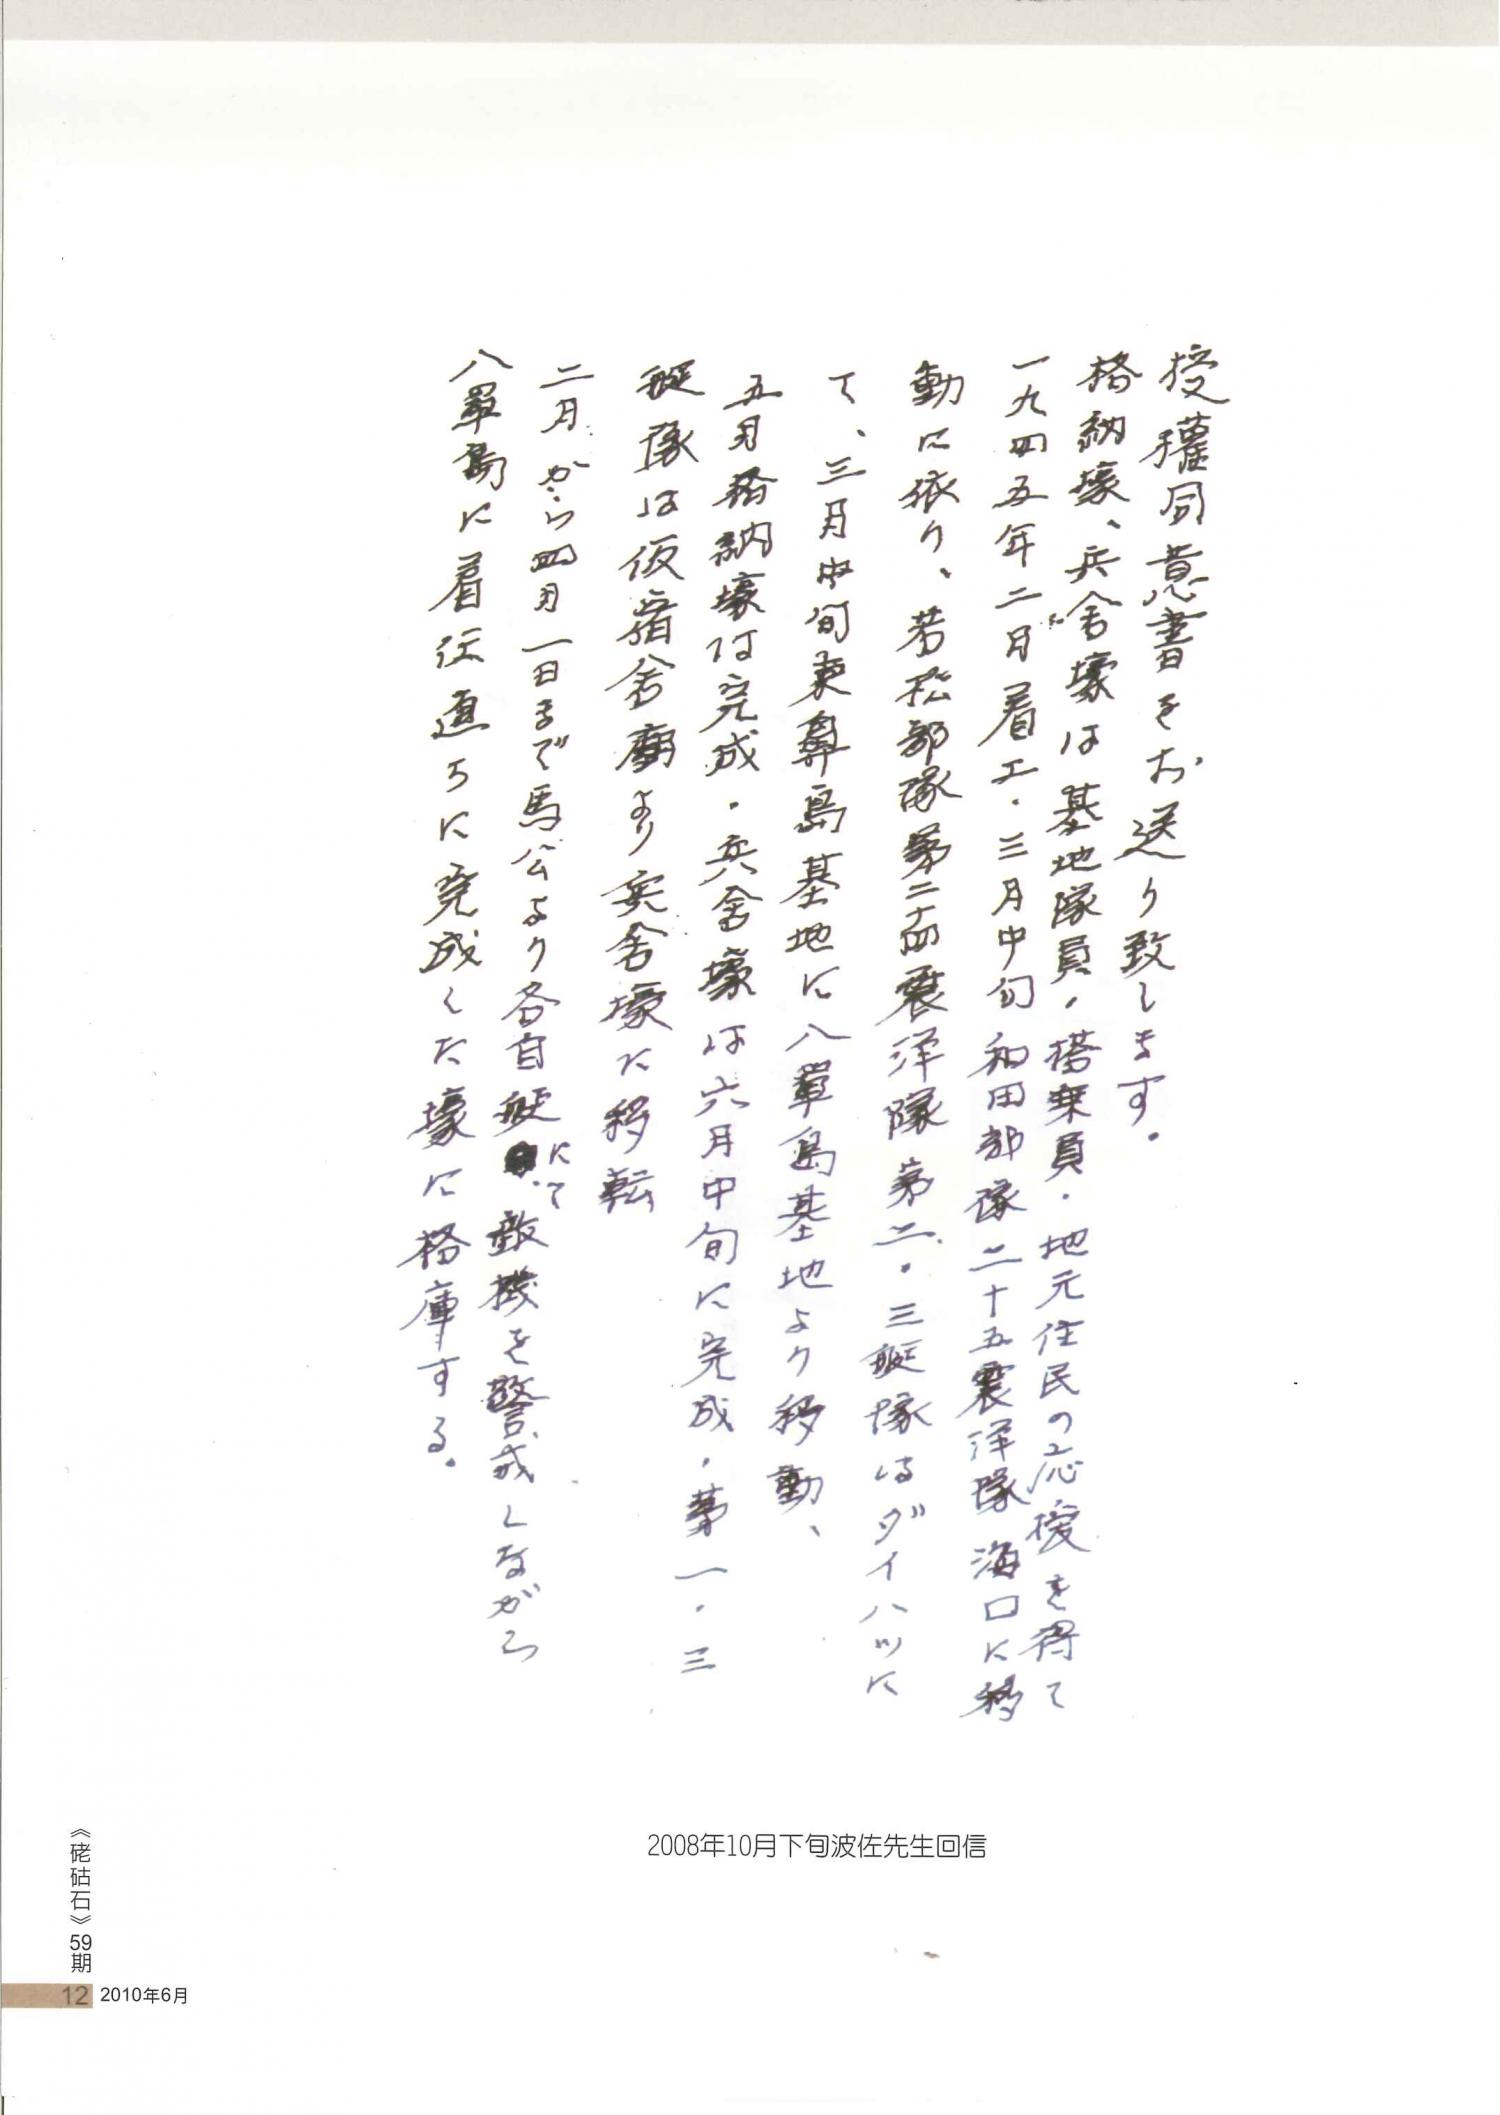 授權同意書をお送り致します。
格納壕、兵舎壕は基地隊員、搭乗員、地元住民の応援を得て
一九四五年二月着工、三月中旬和田部隊二十五震洋隊海口に移
動に依り、若松部隊第二十四震洋隊第二、三艇隊はダイハツに
て、三月中旬東鼻島基地に八罩島基地より移動、
五月格納壕は完成、兵舎壕は六月中旬に完成、第一、三
艇隊は仮宿舎廟より兵舎壕に移転
二月から四月一日まで馬公より各自艇にて敵機を警戒しながら
八罩島に着任直ちに完成した壕に格庫する。
2008年10月下旬波佐先生回信
《硓𥑮石》59期
12 2010年6月